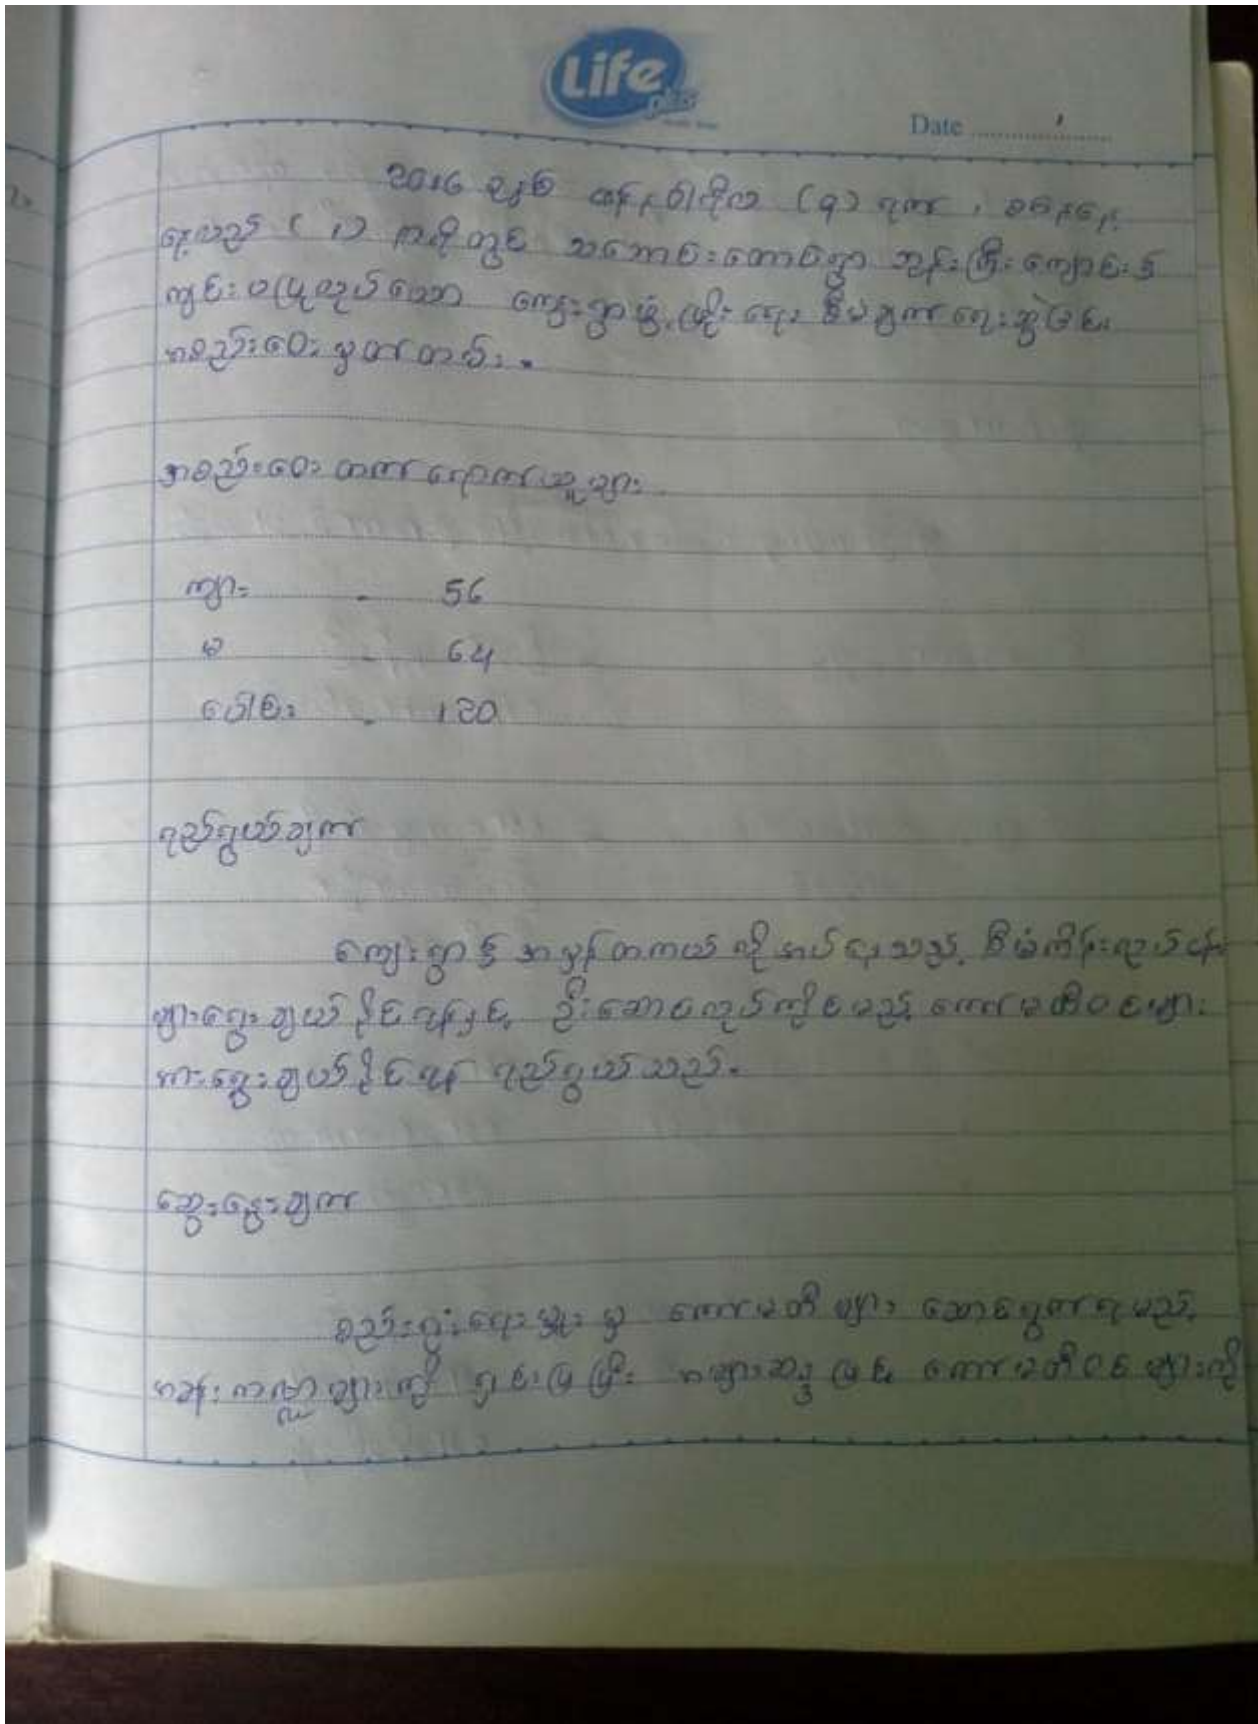 Life
plus
Date
2016 ခုနှစ် ဇန်နဝါရီလ (၅) ရက်၊ စနေနေ့
နေ့လည် (၁) နာရီတွင် သဘောင်းတောင်ရွာ ဘုန်းကြီးကျောင်း၌
ကျင်းပပြုလုပ်သော ကျေးရွာဖွံ့ဖြိုးရေး စီမံချက်ရေးဆွဲခြင်း
အစည်းဝေးမှတ်တမ်း။
အစည်းဝေး တက်ရောက်သူများ
ကျား - 56
မ - 64
ပေါင်း - 120
ရည်ရွယ်ချက်
ကျေးရွာ၌ အမှန်တကယ် လိုအပ်နေသည့် စီမံကိန်းလုပ်ငန်း
များရွေးချယ်နိုင်ရန်နှင့် ဦးဆောင်လုပ်ကိုင်မည့် ကော်မတီဝင်များ
အားရွေးချယ်နိုင်ရန် ရည်ရွယ်သည်။
ဆွေးနွေးချက်
စည်းရုံးရေးမှူးမှ ကော်မတီများ ဆောင်ရွက်ရမည့်
အခန်းကဏ္ဍများကို ရှင်းပြပြီး အများဆန္ဒဖြင့် ကော်မတီဝင်များကို